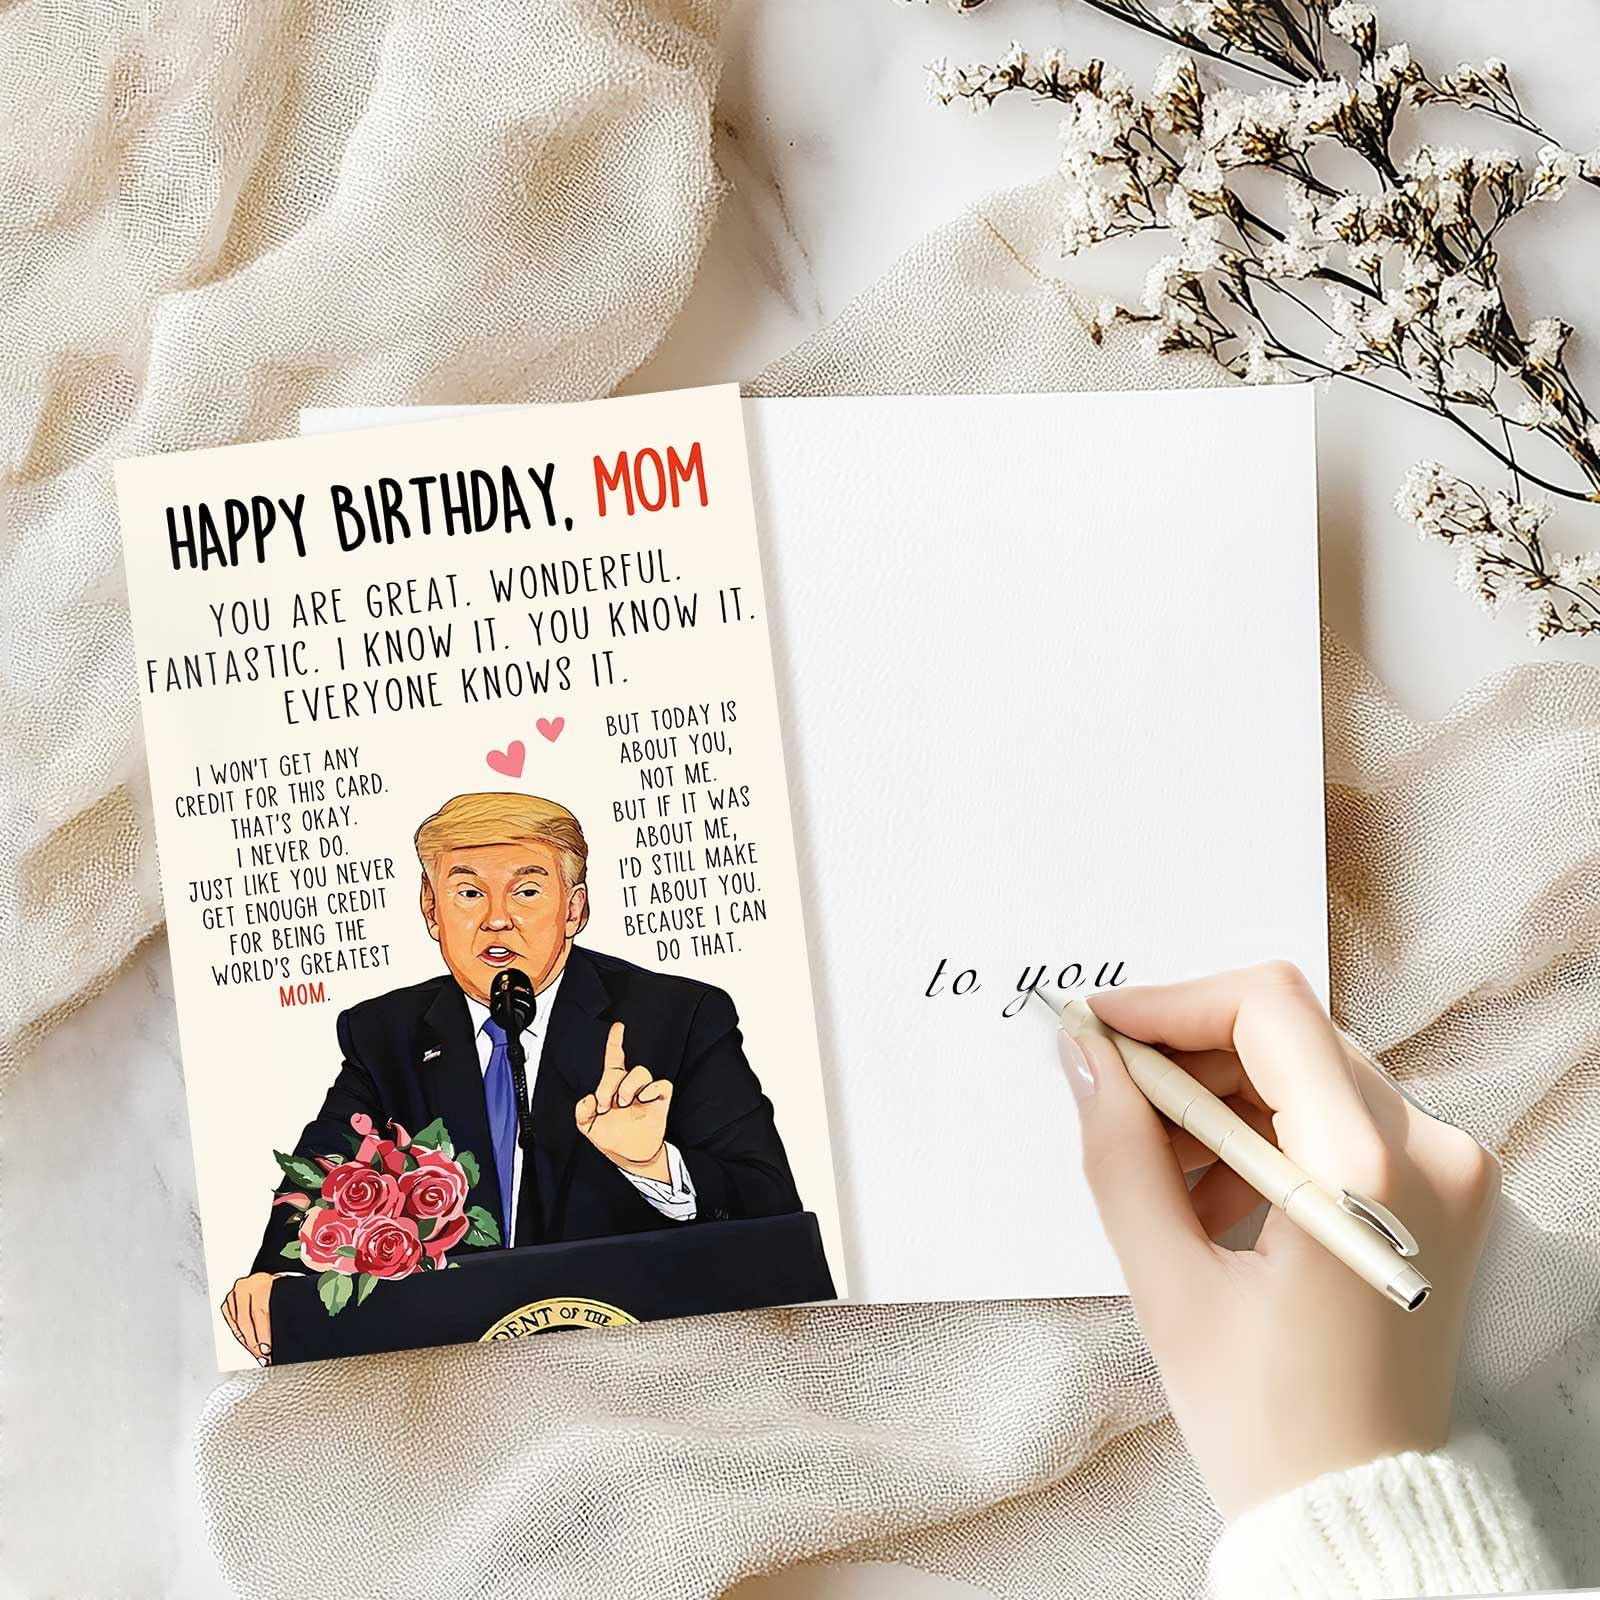 HAPPY BIRTHDAY, MOM
YOU ARE GREAT. WONDERFUL.
FANTASTIC. I KNOW IT. YOU KNOW IT.
EVERYONE KNOWS IT.
I WON'T GET ANY
CREDIT FOR THIS CARD.
THAT'S OKAY.
I NEVER DO.
JUST LIKE YOU NEVER
GET ENOUGH CREDIT
FOR BEING THE
WORLD'S GREATEST
MOM.
BUT TODAY IS
ABOUT YOU,
NOT ME.
BUT IF IT WAS
ABOUT ME,
I'D STILL MAKE
IT ABOUT YOU.
BECAUSE I CAN
DO THAT.
DENT OF THE
to you